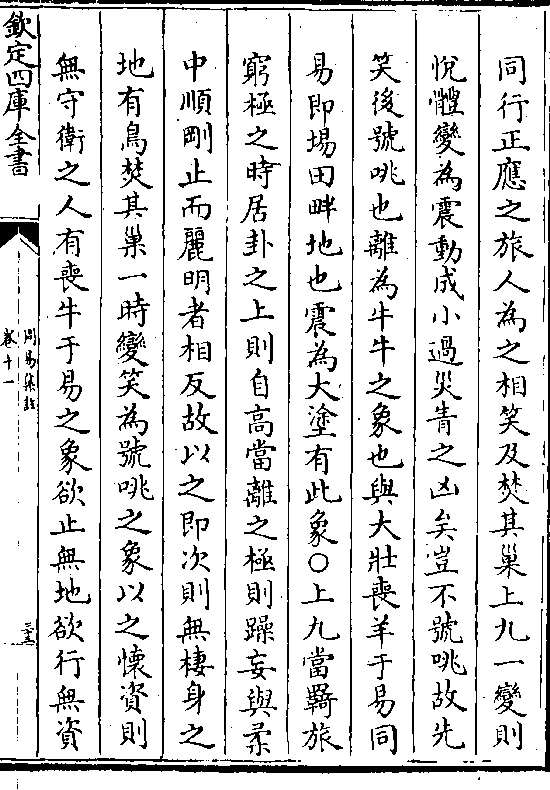 同行正應之旅人為之相笑及焚其巢上九一變則
恱體變為震動成小過災眚之凶矣豈不號咷故先
笑後號咷也離為牛牛之象也與大壯喪羊于易同
易即埸田畔地也震為大塗有此象○上九當羇旅
窮極之時居卦之上則自高當離之極則躁妄與柔
中順剛止而麗明者相反故以之即次則無棲身之
地有鳥焚其巢一時變笑為號咷之象以之懷資則
無守衛之人有喪牛于易之象欲止無地欲行無資
欽定四庫全書
周易集註
卷十一